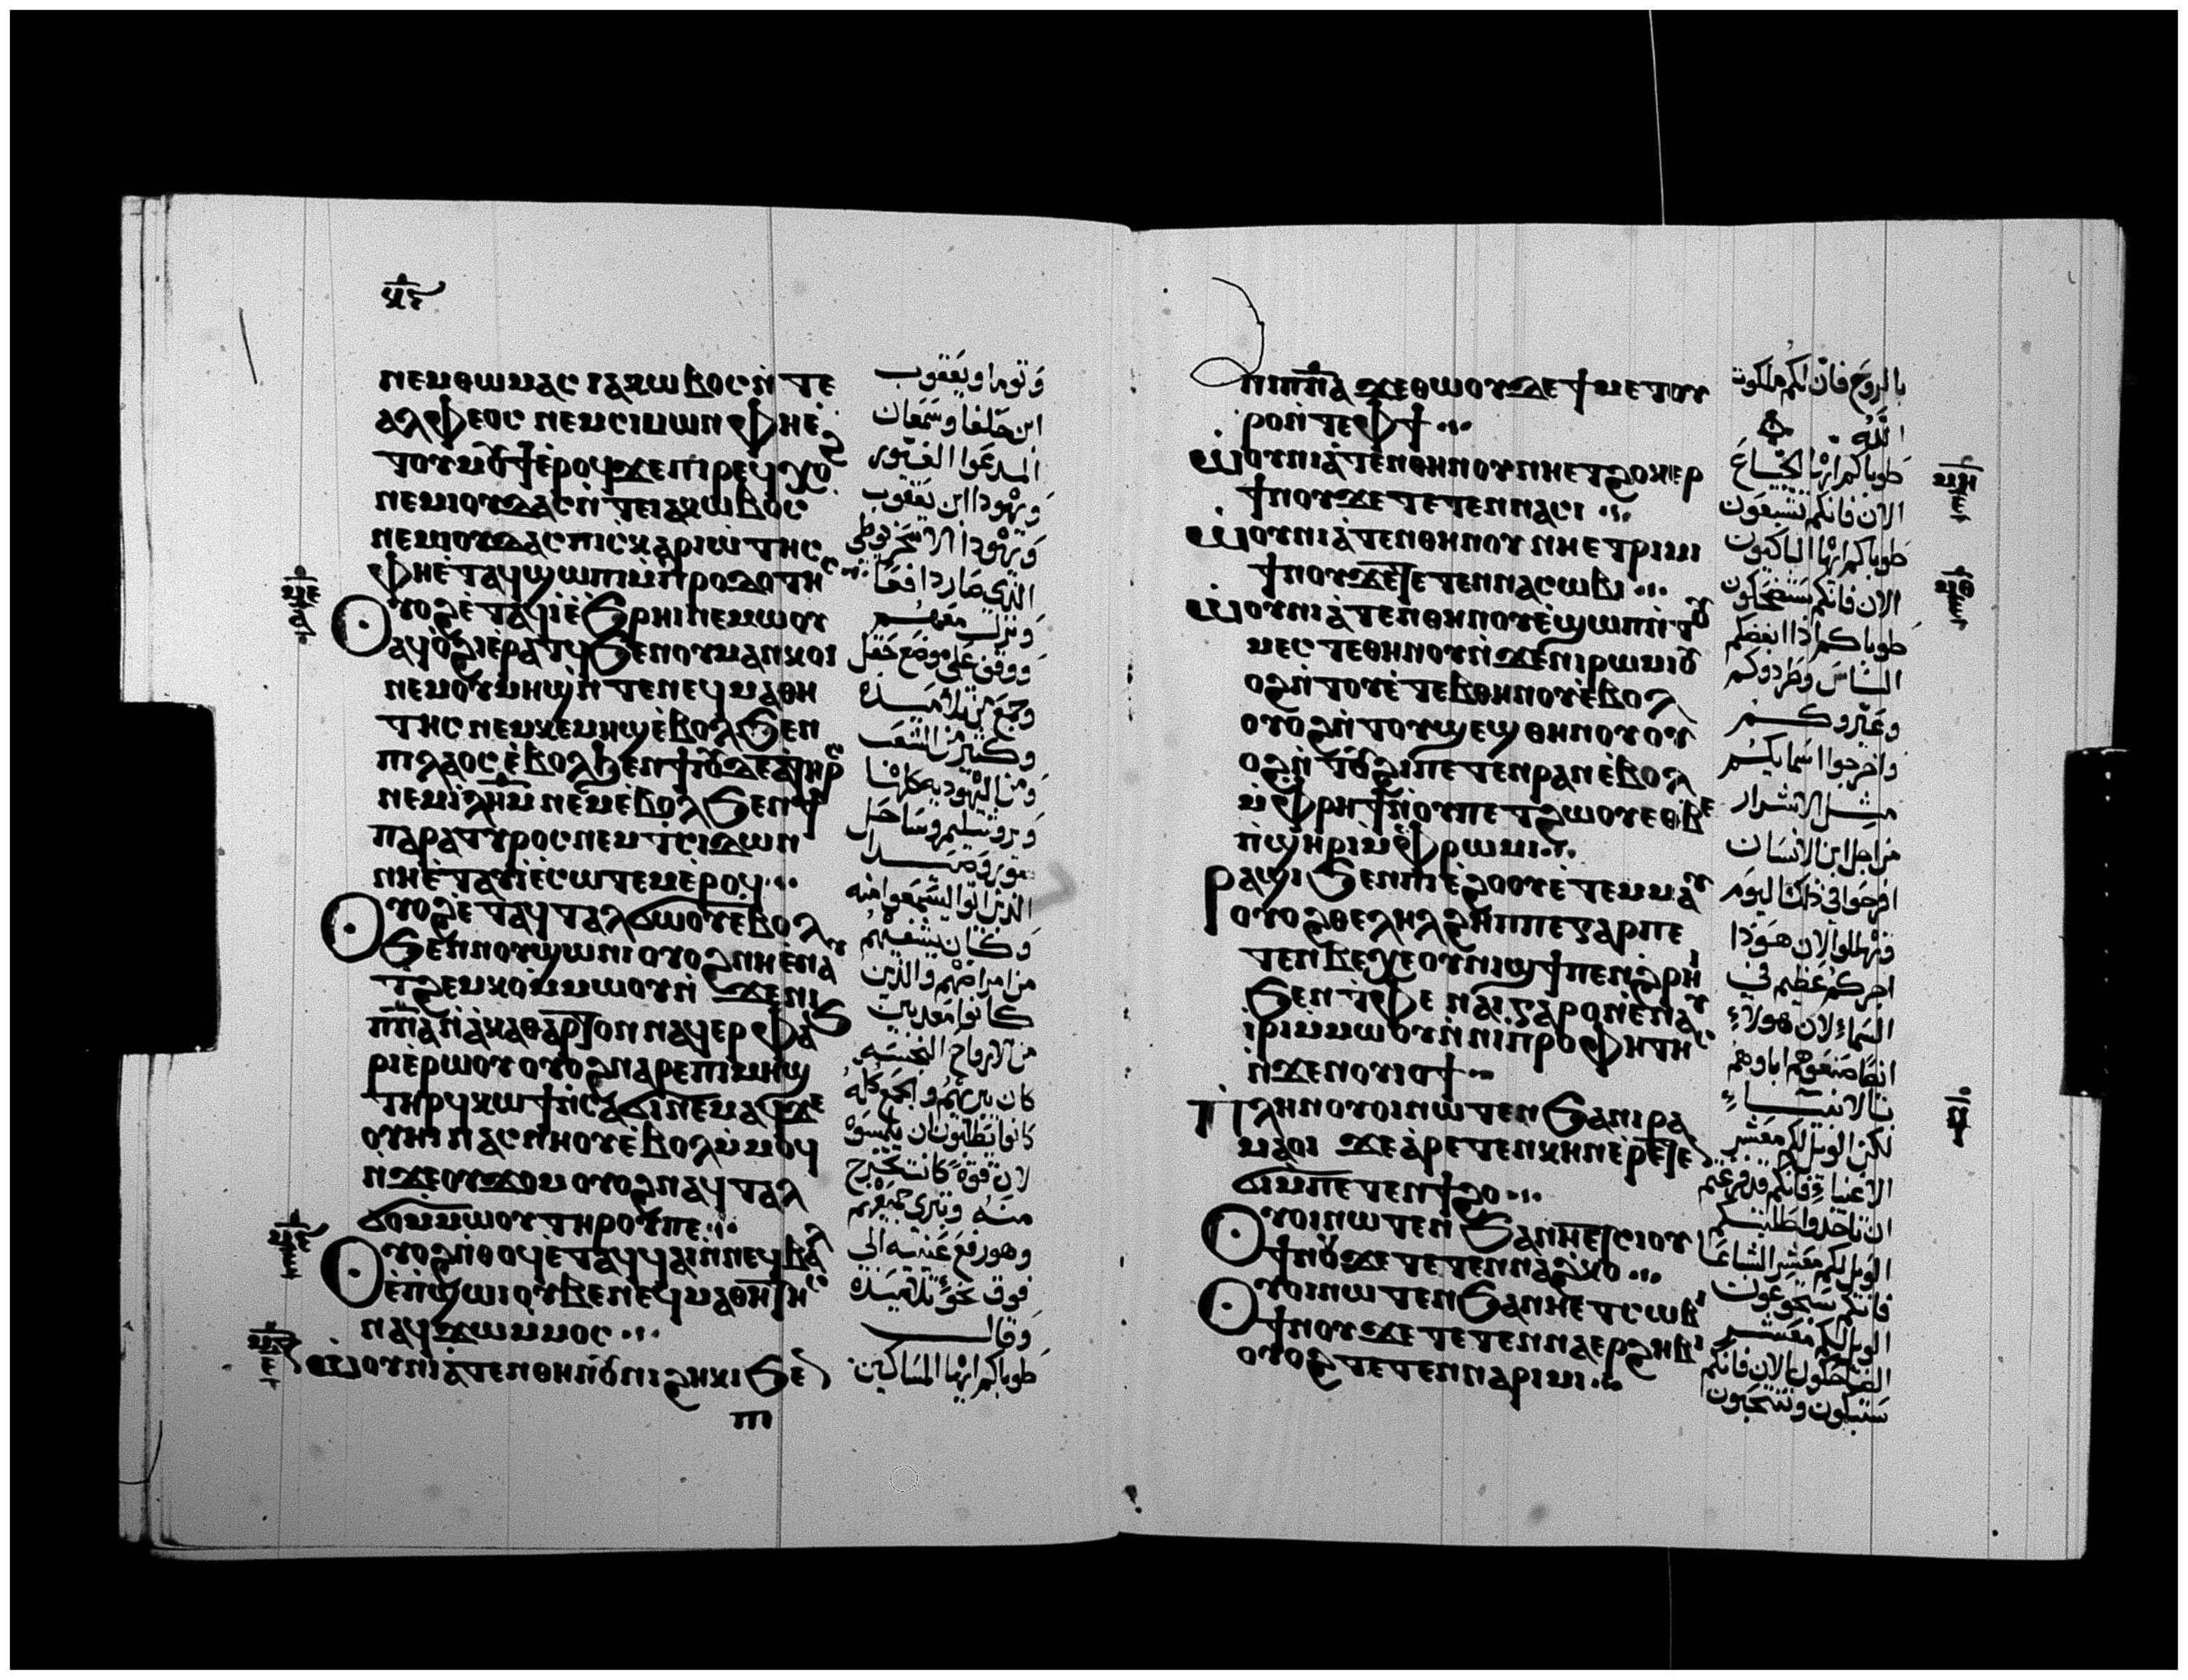 ⲛⲉⲙⲑⲱⲙⲁⲥ ⲓⲁⲕⲱⲃⲟⲥ ⲛ̀ⲧⲉ
ⲁⲗⲫⲉⲟⲥ ⲛⲉⲙⲥⲓⲙⲱⲛ ⲫⲏⲉ̀
ⲛⲉⲙⲓⲟⲩⲇⲁⲥ ⲛ̀ⲧⲉⲓⲁⲕⲱⲃⲟⲥ
ⲛⲉⲙⲓⲟⲩⲇⲁⲥ ⲡⲓⲥⲕⲁⲣⲓⲱⲧⲏⲥ
ⲫⲏⲉ̀ⲧⲁϥϣⲱⲡⲓⲙ̀ⲡⲣⲟⲇⲟⲧⲏⲥ
ⲟⲩⲟϩⲉ̀ⲧⲁϥⲓ̀ⲉ̀ϧⲣⲏⲓⲛⲉⲙⲱⲟⲩ
ⲁϥⲟ̀ϩⲓⲉ̀ⲣⲁⲧϥϧⲉⲛⲟⲩⲙⲁⲛⲕⲟⲓ
ⲛⲉⲙⲟⲩⲙⲏϣⲛ̀ⲧⲉⲛⲉϥⲙⲁⲑⲏ
ⲧⲏⲥ ⲛⲉⲙⲕⲉⲙⲏϣⲉ̀ⲃⲟⲗϧⲉⲛ
ⲛⲉⲙⲓ̅ⲗ̅ⲏ̅ⲙ̅ ⲛⲉⲙⲉ̀ⲃⲟⲗϧⲉⲛϯ
ⲡⲁⲣⲁⲧⲩⲣⲟⲥ ⲛⲉⲙ ⲧⲥⲓⲇⲱⲛ
ⲛⲏⲉ̀ⲧⲁⲩⲓ̀ⲉ̀ⲥⲱⲧⲉⲙⲉ̀ⲣⲟϥ
ⲟⲩⲟϩⲉ̀ⲧⲁϥⲧⲁⲗϭⲱⲟⲩⲉ̀ⲃⲟⲗ
ϧⲉⲛⲛⲟⲩϣⲱⲛⲓ ⲟⲩⲟϩⲛⲏⲉ̀ⲛⲁⲩ
ⲧϩⲉⲙⲕⲟⲙ̀ⲙⲱⲟⲩⲛ̀ϫⲉⲛⲓ
ⲡ̅ⲛ̅ⲁ̅ⲛ̀ⲁ̀ⲕⲁⲑⲁⲣⲧⲟⲛ ⲛⲁϥⲉⲣⲫⲁϧ
ⲣⲓⲉ̀ⲣⲱⲟⲩ ⲟⲩⲟϩⲛⲁⲣⲉⲡⲓⲙⲏϣ
ⲧⲏⲣϥⲕⲱϯⲛ̀ⲥⲁϭⲓⲛⲉⲙⲁϥϫⲉ
ⲟⲩⲏⲓ ⲛⲁⲥⲛⲏⲟⲩⲉ̀ⲃⲟⲗⲙ̀ⲙⲟϥ
ⲛ̀ϫⲉⲟⲩϫⲟⲙ ⲟⲩⲟϩⲛⲁϥⲧⲁⲗ
ϭⲟⲙ̀ⲙⲱⲟⲩ ⲧⲏⲣⲟⲩⲡⲉ
ⲟⲩⲟϩⲛ̀ⲑⲟϥⲉ̀ⲧⲁϥϥⲁⲓⲛ̀ⲛⲉϥⲃⲁⲗ
ⲉ̀ⲡ̀ϣⲱⲓⲟⲩⲃⲉⲛⲉϥⲙⲁⲑⲏⲧⲏⲥ
ⲛⲁϥϫⲱⲙ̀ⲙⲟⲥ
ⲱ̀ⲟⲩⲛⲓⲁ̀ⲧⲉⲛⲑⲏⲛⲟⲩⲛⲓϩⲏⲕⲓϧⲉⲛ
ⲡⲓ
وتوما ويعقوب
ابن حلفا وسمعان
المدعوا الغيور
ويهودا ابن يعقوب
ويهودا الاسخريوطي
الذي صار دافعا
ونزل معهم
ووقف على موضع حقل
وجمع من تلاميذه
وكثير من الشعب
ومن اليهوديه كلها
ويروشليم وساحل
صور وصيدا
الذين اتوا ليسمعوا منه
وكان يشفيهم
من امراضهم والذين
كانوا معذبين
من الارواح النجسه
كان يبريهم والجمع كله
كانوا يطلبون ان يلمسوه
لان قوة كانت تخرج
منه وتبري جميعهم
وهو رفع عينيه الى
فوق نحو تلاميذه
وقال
طوباكم ايها المساكين
ⲡⲓⲡ̅ⲛ̅ⲁ̅ ϫⲉⲑⲱⲟⲩⲇⲉϯⲙⲉⲧⲟⲩ
ⲣⲟⲛ̀ⲧⲉⲫϯ
ⲱ̀ⲟⲩⲛⲓⲁ̀ⲧⲉⲛⲑⲏⲛⲟⲩⲛⲏⲉⲧϩⲟⲕⲉⲣ
ϯⲛⲟⲩϫⲉⲧⲉⲧⲉⲛⲛⲁⲥⲓ
ⲱ̀ⲟⲩⲛⲓⲁ̀ⲧⲉⲛⲑⲏⲛⲟⲩ ⲛⲏⲉⲧⲣⲓⲙⲓ
ϯⲛⲟⲩϫⲉⲧⲉⲧⲉⲛⲛⲁⲥⲱⲃⲓ
ⲱ̀ⲟⲩⲛⲓⲁ̀ⲧⲉⲛⲑⲏⲛⲟⲩⲉ̀ϣⲱⲡⲛ̀ⲧⲟⲩ
ⲙⲉⲥⲧⲉⲑⲏⲛⲟⲩⲛ̀ϫⲉⲛⲓⲣⲱⲙⲓⲟⲩ
ⲟϩⲛ̀ⲧⲟⲩⲉ̀ⲧⲉⲃⲑⲏⲛⲟⲩⲉ̀ⲃⲟⲗ
ⲟⲩⲟϩⲛ̀ⲧⲟⲩϣⲉϣⲑⲏⲛⲟⲩⲟⲩ
ⲟϩⲛ̀ⲧⲟⲩϩⲓⲡⲉⲧⲉⲛⲣⲁⲛⲉ̀ⲃⲟⲗ
ⲙ̀ⲫⲣⲏϯⲛ̀ⲟⲩⲡⲉⲧϩⲱⲟⲩⲉⲑⲃⲉ
ⲡ̀ϣⲏⲣⲓⲙ̀ⲫⲣⲱⲙⲓ
ⲣⲁϣⲓϧⲉⲛⲡⲓⲉ̀ϩⲟⲟⲩⲉ̀ⲧⲉⲙⲙⲁⲩ
ⲟⲩⲟϩⲑⲉⲗⲏⲗϩⲏⲡⲡⲉⲅⲁⲣⲡⲉ
ⲧⲉⲛⲃⲉⲭⲉⲟⲩⲛⲓϣϯⲡⲉⲛ̀ϩⲣⲏⲓ
ϧⲉⲛⲧ̀ⲫⲉ ⲛⲁⲓⲅⲁⲣⲟⲛⲉ̀ⲛⲁⲩ
ⲓⲣⲓⲙ̀ⲙⲱⲟⲩⲛ̀ⲛⲓⲡⲣⲟⲫⲏⲧⲏⲥ
ⲛ̀ϫⲉⲛⲟⲩⲓⲟϯ
ⲡⲗⲏⲛⲟⲩⲟⲓⲛⲱⲧⲉⲛ ϧⲁⲛⲓⲣⲁ
ⲙⲁⲟⲓ ϫⲉⲁ̀ⲣⲉⲧⲉⲛⲕⲏⲛⲉ̀ⲣⲉⲧⲉⲛ
ϭⲓⲙ̀ⲡⲉⲧⲉⲛϯϩⲟ
ⲟⲩⲟⲓⲛⲱⲧⲉⲛ ϧⲁⲛⲏⲉⲧⲥⲓⲟⲩ
ϯⲛⲟⲩϫⲉⲧⲉⲧⲉⲛⲛⲁϩⲕⲟ
ⲟⲩⲟⲓⲛⲱⲧⲉⲛϧⲁⲛⲏⲉⲧⲥⲱⲃⲓ
ϯⲛⲟⲩϫⲉⲧⲉⲧⲉⲛⲛⲁⲉⲣϩⲏⲃⲓ
ⲟⲩⲟϩⲧⲉⲧⲉⲛⲛⲁⲣⲓⲙⲓ
بالروح فان لكم ملكوت
الله
طوباكم ايها الجياع
الان فانكم تشبعون
طوباكم ايها الباكيون
الان فانكم ستضحكون
طوباكم اذا ابغضكم
الناس وطردوكم
وعيروكم
واخرجوا اسمايكم
مثل الاشرار
من اجل ابن الانسان
افرحوا في ذلك اليوم
وتهللوا لان هوذا
اجركم عظيم في
السماء لان هولاء
ايضا صنعوهم اباوهم
بالانبياء
لكن الويل لكم معشر
الاغنياء فانكم قد فرغتم
ان تاخذوا طلبتكم
الويل لكم معشر الشباعا
فانكم ستجوعون
الويل لكم معشر
الضاحكون الان فانكم
ستبكون وتنتحبون